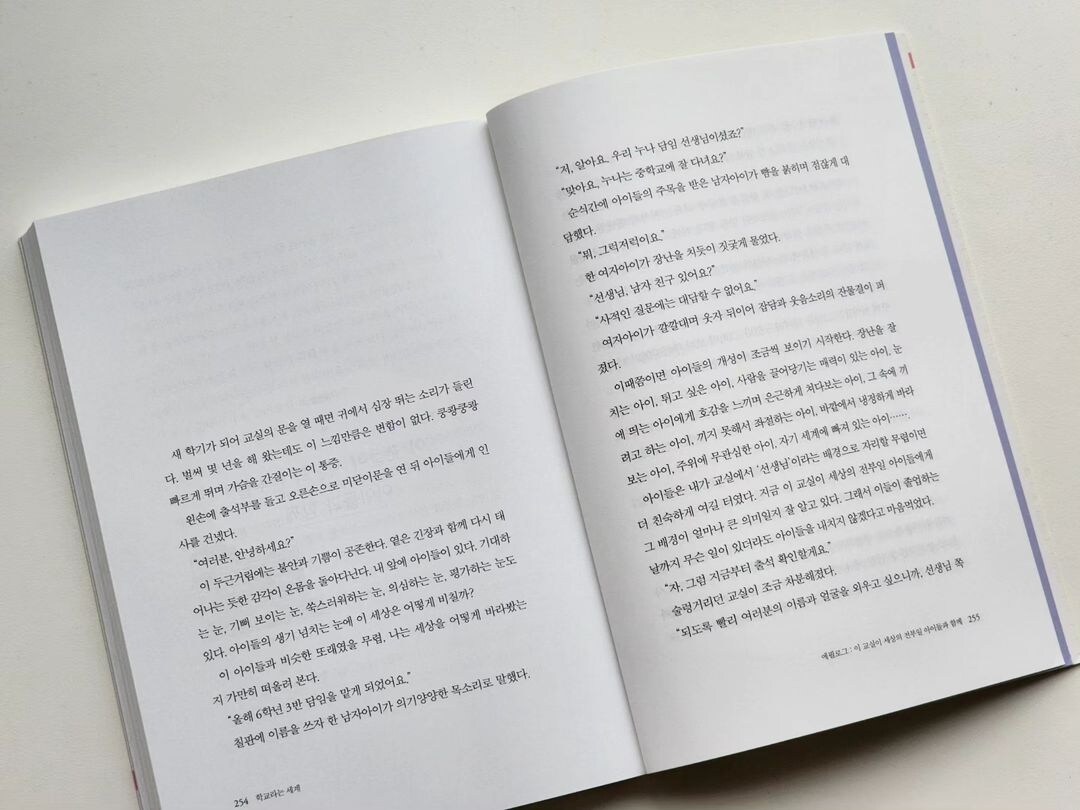 새 학기가 되어 교실의 문을 열 때면 귀에서 심장 뛰는 소리가 들린
다. 벌써 몇 년을 해 왔는데도 이 느낌만큼은 변함이 없다. 쿵쾅쿵쾅
빠르게 뛰며 가슴을 간질이는 이 통증.
왼손에 출석부를 들고 오른손으로 미닫이문을 연 뒤 아이들에게 인
사를 건넸다.
“여러분, 안녕하세요?”
이 두근거림에는 불안과 기쁨이 공존한다. 옅은 긴장과 함께 다시 태
어나는 듯한 감각이 온몸을 돌아다닌다. 내 앞에 아이들이 있다. 기대하
는 눈, 기뻐 보이는 눈, 쑥스러워하는 눈, 의심하는 눈, 평가하는 눈도
있다. 아이들의 생기 넘치는 눈에 이 세상은 어떻게 비칠까?
이 아이들과 비슷한 또래였을 무렵, 나는 세상을 어떻게 바라봤는
지 가만히 떠올려 본다.
“올해 6학년 3반 담임을 맡게 되었어요.”
칠판에 이름을 쓰자 한 남자아이가 의기양양한 목소리로 말했다.
254 학교라는 세계
“저, 알아요. 우리 누나 담임 선생님이셨죠?”
“맞아요, 누나는 중학교에 잘 다녀요?”
순식간에 아이들의 주목을 받은 남자아이가 뺨을 붉히며 점잖게 대
답했다.
“뭐, 그럭저럭이요.”
한 여자아이가 장난을 치듯이 짓궂게 물었다.
“선생님, 남자 친구 있어요?”
“사적인 질문에는 대답할 수 없어요.”
여자아이가 깔깔대며 웃자 뒤이어 잡담과 웃음소리의 잔물결이 퍼
졌다.
이때쯤이면 아이들의 개성이 조금씩 보이기 시작한다. 장난을 잘
치는 아이, 튀고 싶은 아이, 사람을 끌어당기는 매력이 있는 아이, 눈
에 띄는 아이에게 호감을 느끼며 은근하게 쳐다보는 아이, 그 속에 끼
려고 하는 아이, 끼지 못해서 좌절하는 아이, 바깥에서 냉정하게 바라
보는 아이, 주위에 무관심한 아이, 자기 세계에 빠져 있는 아이……
아이들은 내가 교실에서 ‘선생님’이라는 배경으로 자리할 무렵이면
더 친숙하게 여길 터였다. 지금 이 교실이 세상의 전부일 아이들에게
그 배경이 얼마나 큰 의미일지 잘 알고 있다. 그래서 이들이 졸업하는
날까지 무슨 일이 있더라도 아이들을 내치지 않겠다고 마음먹었다.
“자, 그럼 지금부터 출석 확인할게요.”
술렁거리던 교실이 조금 차분해졌다.
“되도록 빨리 여러분의 이름과 얼굴을 외우고 싶으니까, 선생님 쪽
에필로그 : 이 교실이 세상의 전부일 아이들과 함께 255